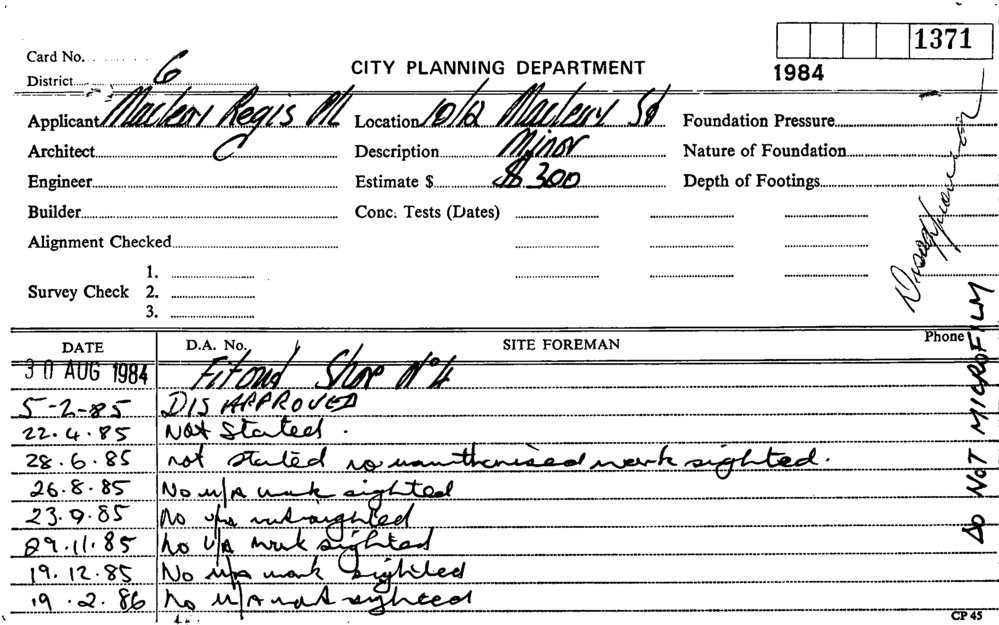 1371
1984
Card No.
District 6
CITY PLANNING DEPARTMENT
Applicant Macleay Regis P/L Location 10/12 Macleay St Foundation Pressure
Architect C Description Minor Nature of Foundation
Engineer Estimate $ $300 Depth of Footings
Builder Conc. Tests (Dates)
Alignment Checked
1.
Survey Check 2.
3.
Disapproved
DO NOT MICROFILM
DATE D.A. No. SITE FOREMAN Phone
30 AUG 1984 Fitout Shop No 4
5-2-85 DISAPPROVED
22.4.85 Not Started.
28.6.85 not started no unauthorised work sighted.
26.8.85 No u/a work sighted
23.9.85 No u/a work sighted
29.11.85 No u/a work sighted
19.12.85 No u/a work sighted
19.2.86 No u/a work sighted
CP 45